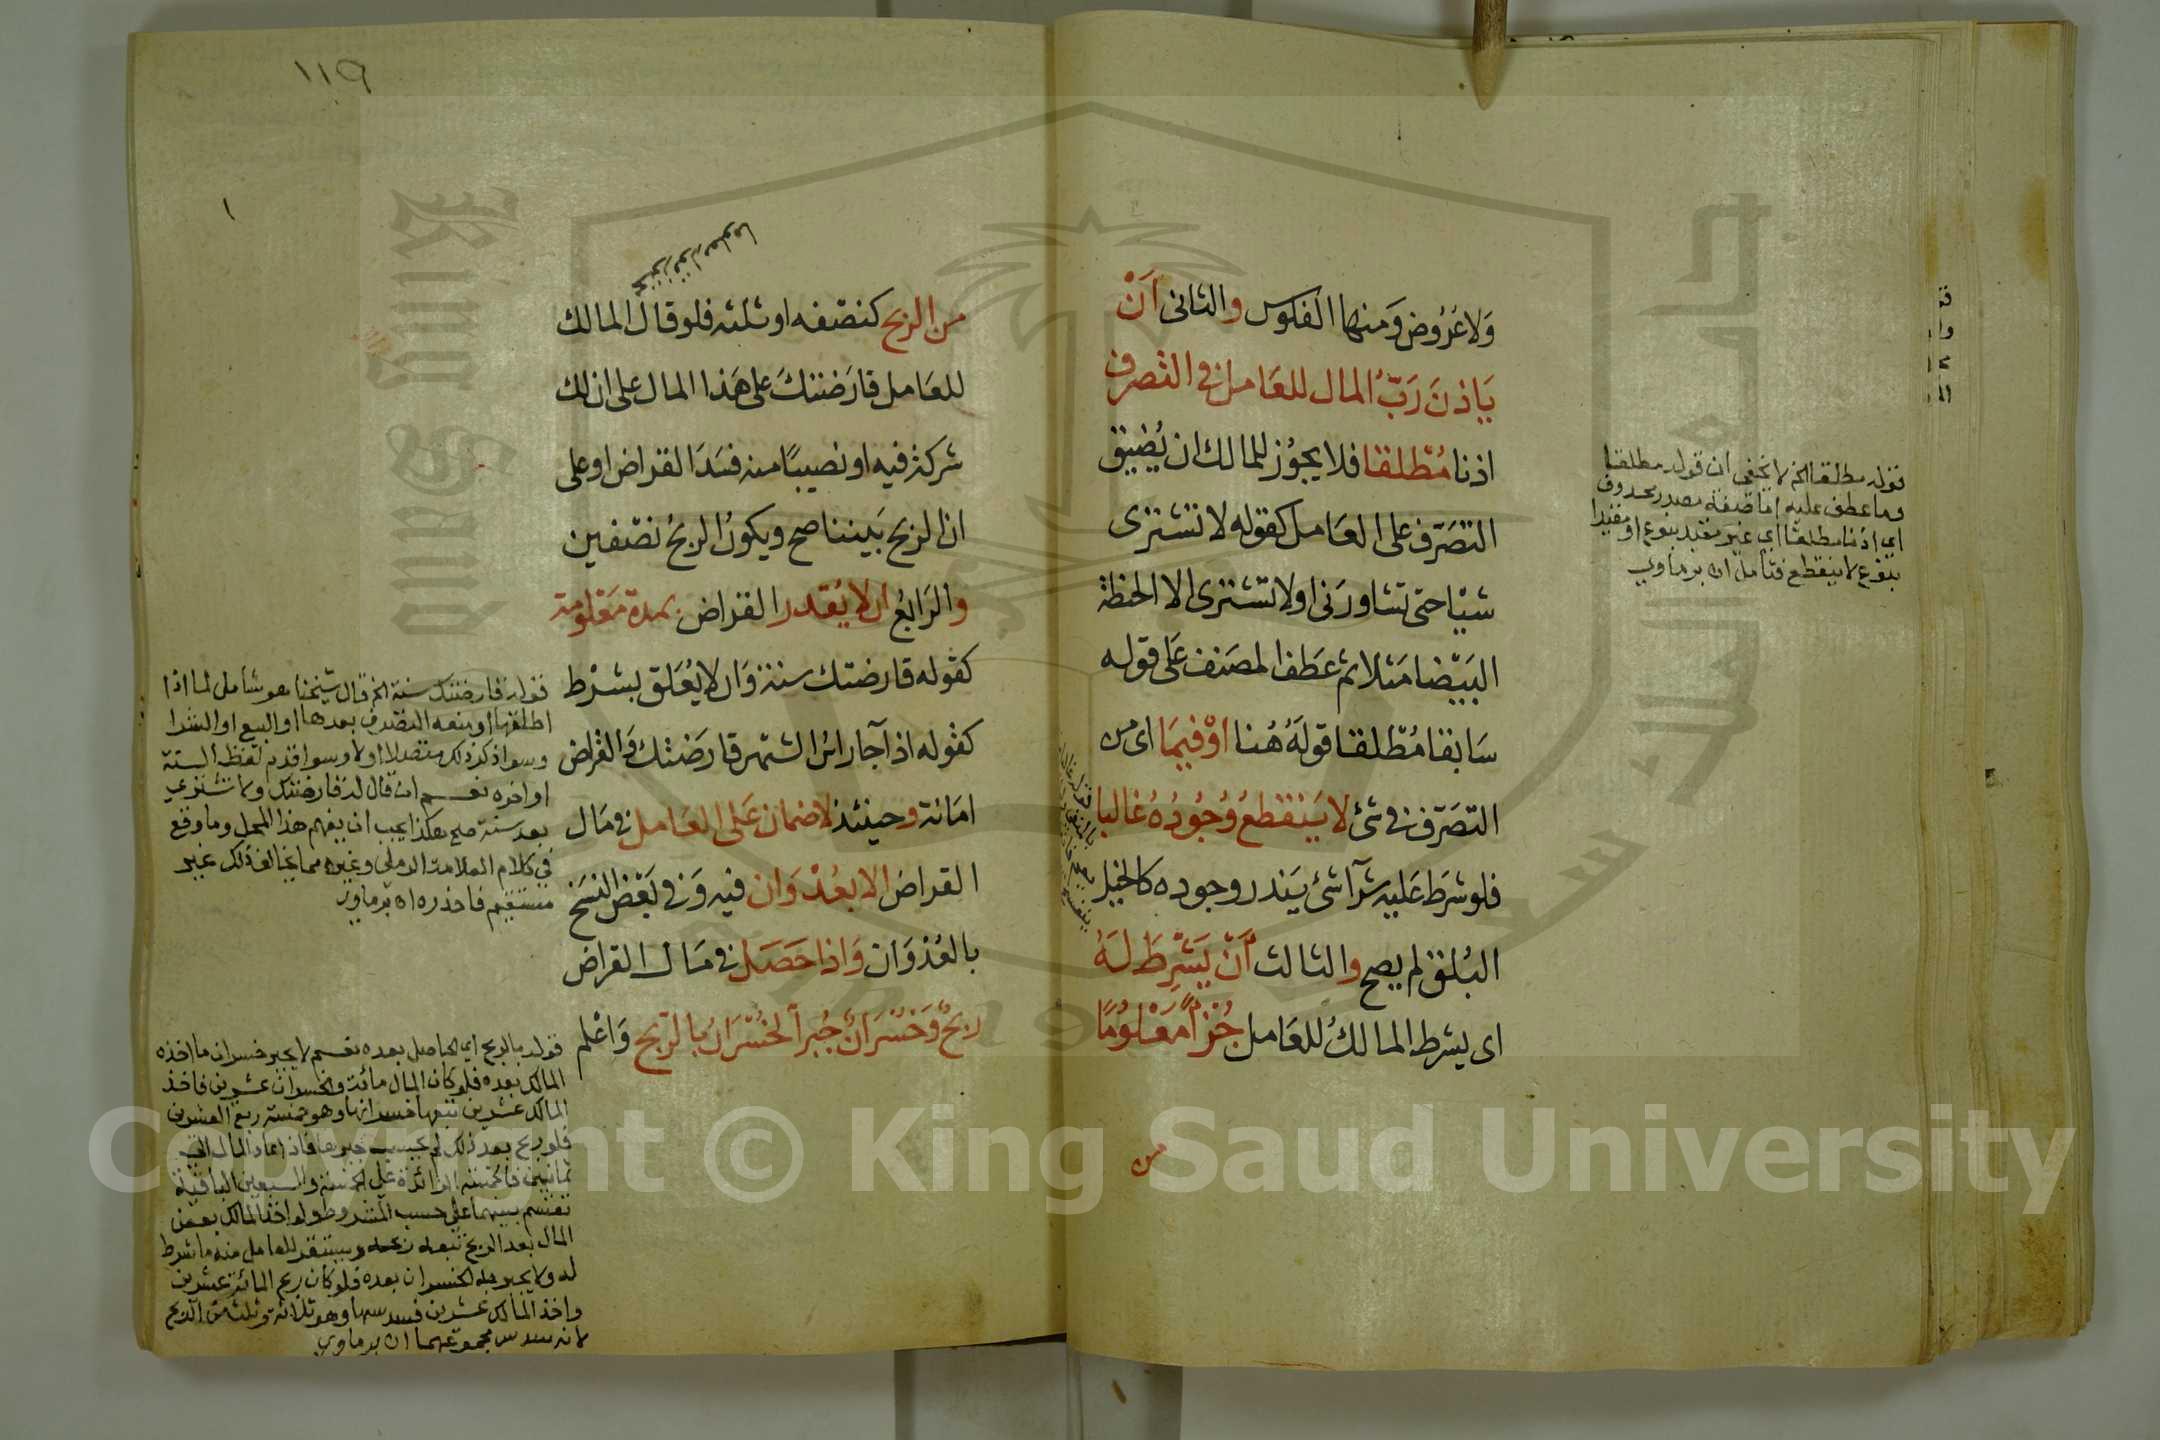 وَلا عُرُوض وَمنها الفلوس والثانى اَنْ
يَاذنَ رَبُّ المال للعَامل فى التصرف
اذنا مُطلقا فلا يجوُز للمالك ان يُضيق
التصَرّف على العَامل كقوله لا تشترى
شيئا حتى تشاورَنى اولا تشترى الا الحنطة
البَيْضا مَثلا ثم عَطف المصَنف عَلى قوله
سَابقا مُطلقا قولَهُ هُنا اوْ فيمَا اى من
التصَرّف فى شئ لا يَنقطعُ وُجُودُهُ غالبا
فلو شرَط عَليه شرآ شئ يَندر وجوده كالخيل
البُلق لم يصح والثالث اَنْ يَشرِطَ لهُ
اى يشرط المالكُ للعَامل جُزأً مَعْلوُمًا
من
قوله مطلقا الخ لا يخفى ان قوله مطلقا
وما عطف عليه اما صفة مصدر محذوف
اي اذنا مطلقا اي غير مقيد بنوع او مقيدا
بنوع لا ينقطع فتامل اه برماوي
١١٩
من الربح كنصفه او ثلثه فلو قال المالك
للعَامل قارَضتكَ على هَذا المال على ان لك
شركة فيه او نصيبًا منه فسَدَ القراض او على
ان الربح بَيننا صح ويكونُ الربحُ نصْفين
والرَابعُ ان لا يُقدر القراض بمدة مَعْلومة
كقوله قارضتك سنة وَان لا يُعَلق بشرْط
كقوله اذا جا راسُ الشهر قارَضتك وَالقراض
امَانة وحينئذ لا ضمان عَلى العَامل فى مَال
القراض الا بعُدْوَان فيه وَفى بَعْض النسَخ
بالعُدْوَان وَاذا حَصَل فى مَال القراض
ربحٌ وَخسْرَانٌ جُبرَ الخسْرَانُ بالرّبح وَاعْلم
قوله قارضتك سنة الخ قال شيخنا هو شامل لما اذا
اطلقها او منعه التصرف بعدها او البيع او الشرا
وسوا ذكر ذلك متصلا اولا وسوا قدم لفظ السنة
او اخره نعم ان قال له قارضتك ولا تشتري
بعد سنة صح هكذا يجب ان يفهم هذا المحل وما وقع
في كلام العلامة الرملي وغيره مما يخالف ذلك غير
مستقيم فاحذره اه برماوي
قوله بالربح اي الحاصل بعده نعم لا يجبر خسران ما اخذه
المالك بعده فلو كان المال مائة والخسران عشرين فاخذ
المالك عشرين تبعها خسرانها وهو خمسة ربع العشرين
فلو ربح بعد ذلك لم يجب جبرها فاذا عاد المال الى
ثمانين فالخمسة الزائدة على الخمسة والسبعين الباقية
تقسم بينهما على حسب المشروط ولو اخذ المالك بعض
المال بعد الربح تبعه ربحه ويستقر للعامل منه ما شرط
له ولا يجبر به الخسران بعده فلو كان ربح المائة عشرين
واخذ المالك عشرين فسدسها وهو ثلاثة وثلث من الربح
لانه سدس مجموعهما اه برماوي
Copyright © King Saud University